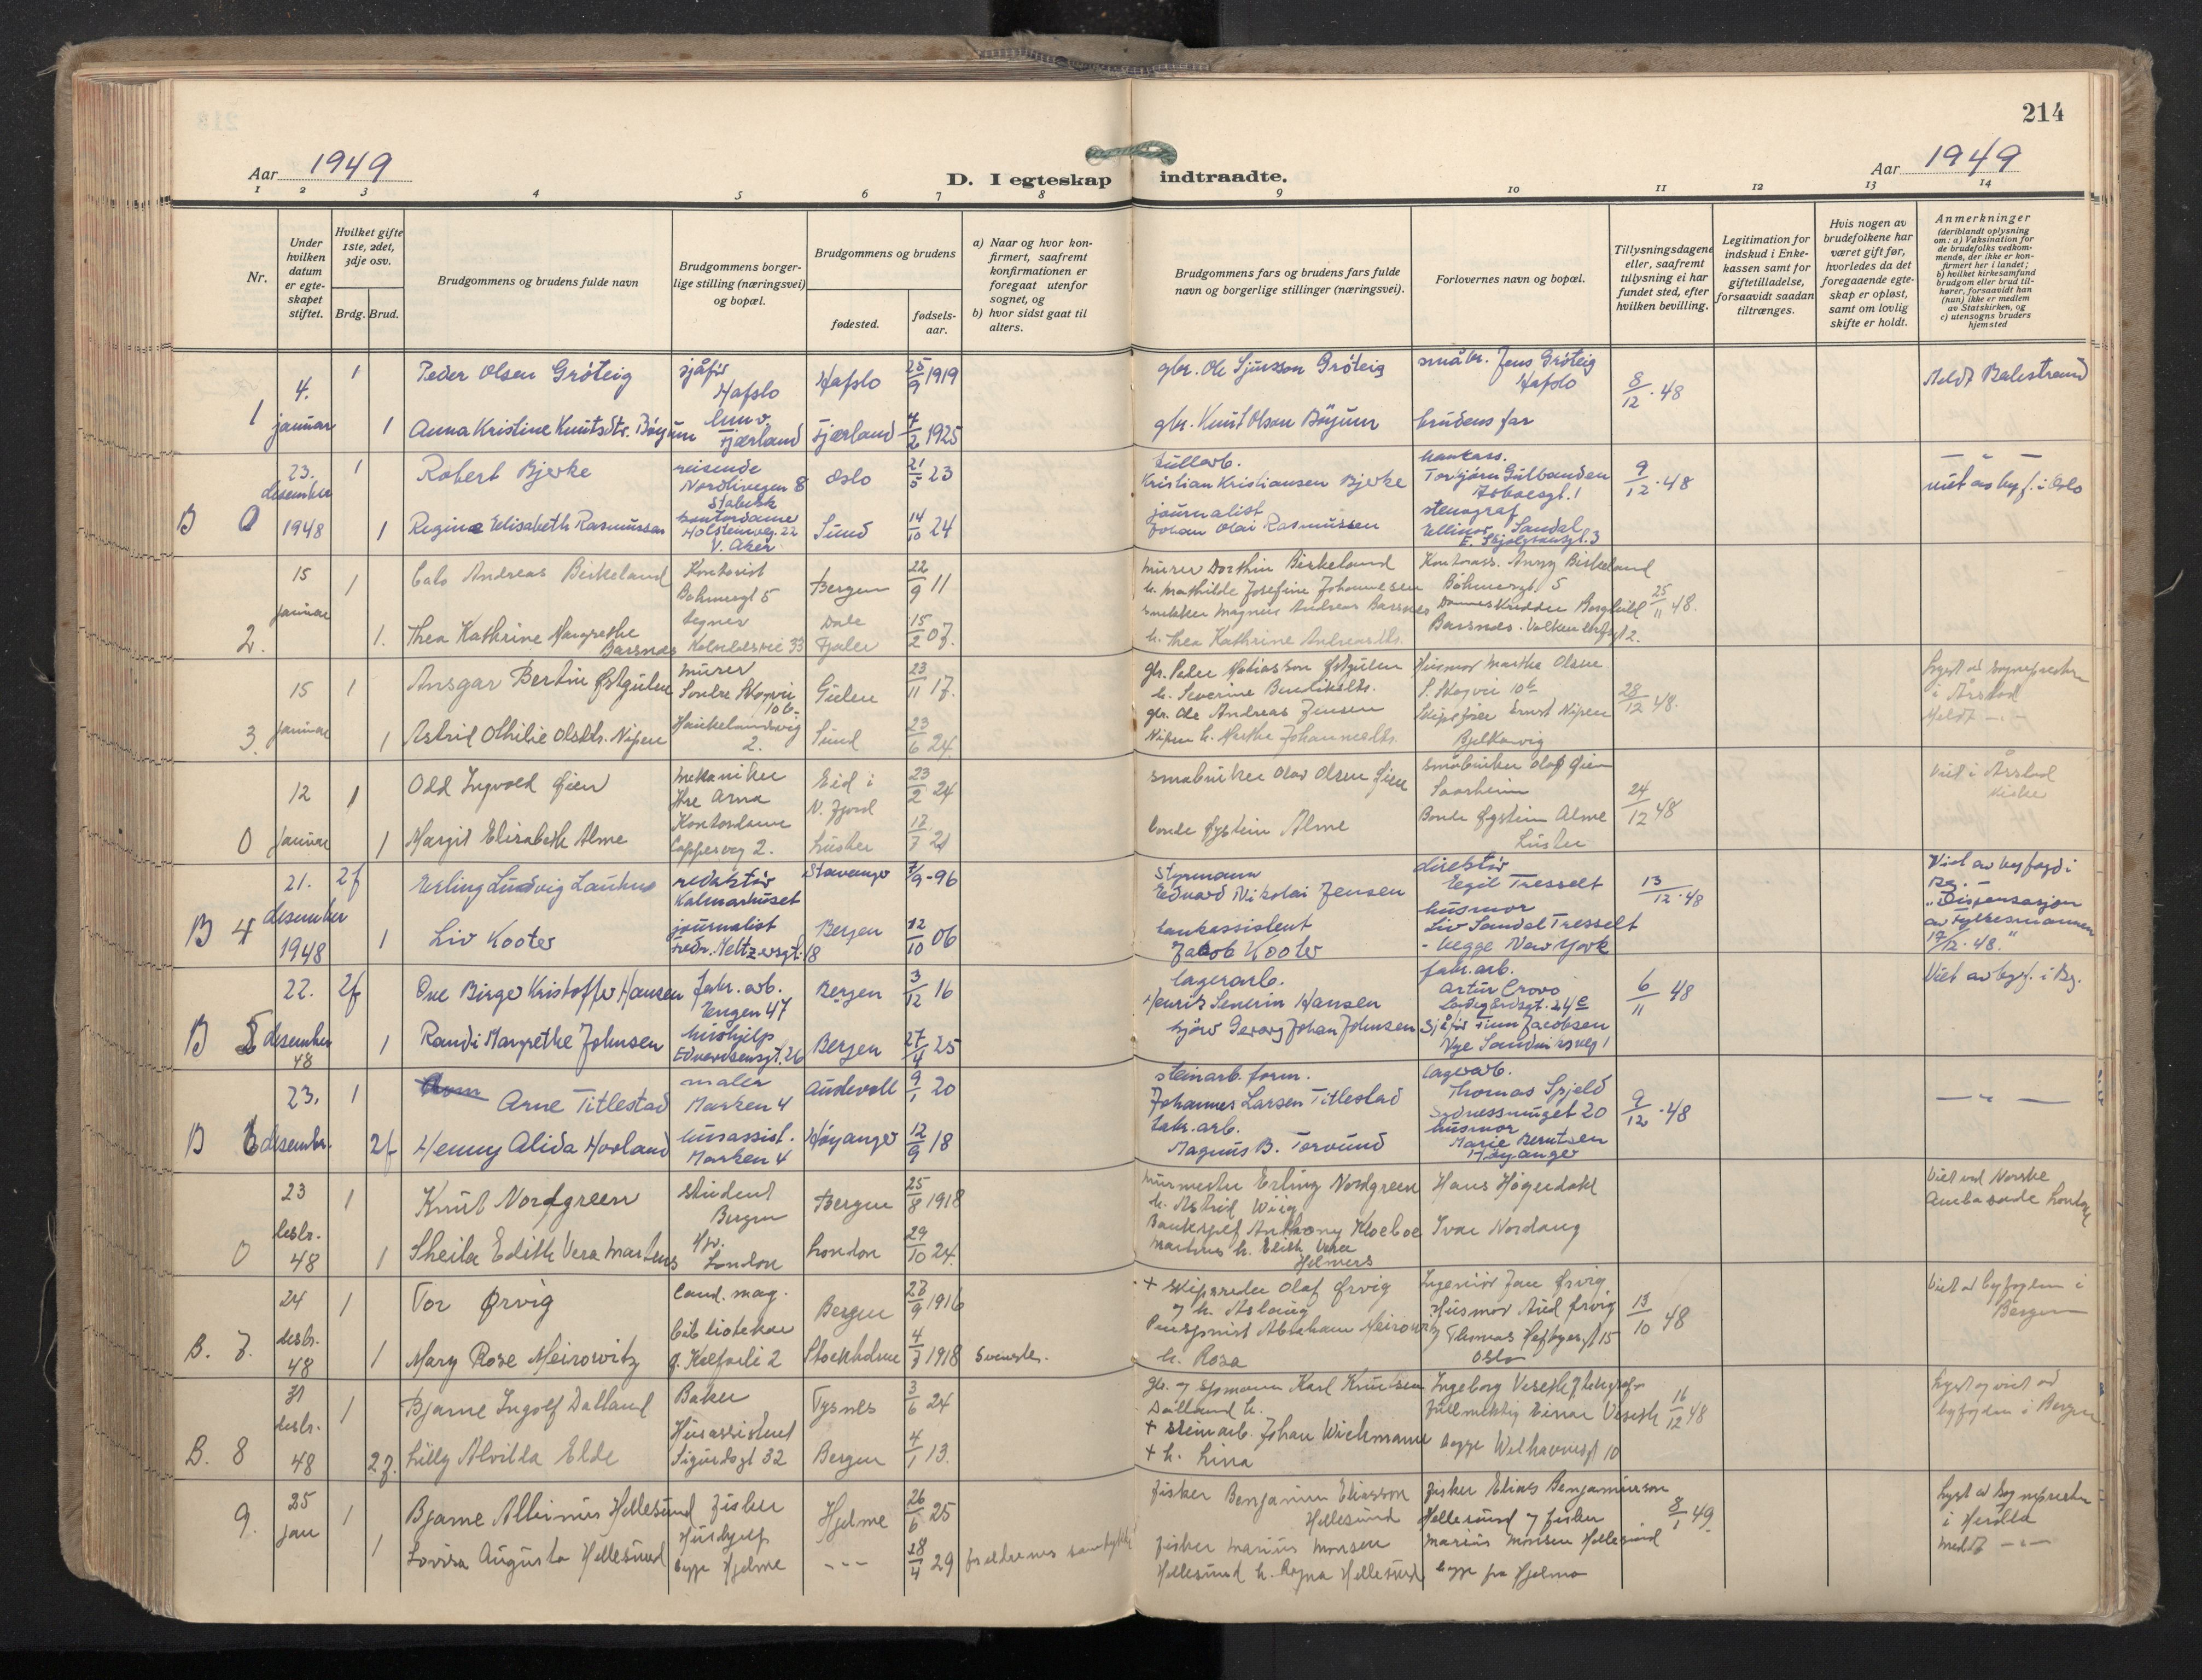 214
Aar 1949
D. I egteskap indtraadte.
Aar 1949
1 2 3 4 5 6 7 8 9 10 11 12 13 14
Nr.
Under hvilken datum er egteskapet stiftet.
Hvilket gifte 1ste, 2det, 3dje osv.
Brdg. Brud.
Brudgommens og brudens fulde navn
Brudgommens borgerlige stilling (næringsvei) og bopæl.
Brudgommens og brudens
fødested.
fødselsaar.
a) Naar og hvor konfirmert, saafremt konfirmationen er foregaat utenfor sognet, og
b) hvor sidst gaat til alters.
Brudgommens fars og brudens fars fulde navn og borgerlige stillinger (næringsvei).
Forlovernes navn og bopæl.
Tillysningsdagene eller, saafremt tillysning ei har fundet sted, efter hvilken bevilling.
Legitimation for indskud i Enkekassen samt for giftetilladelse, forsaavidt saadan tiltrænges.
Hvis nogen av brudefolkene har været gift før, hvorledes da det foregaaende egteskap er opløst, samt om lovlig skifte er holdt.
Anmerkninger
(deriblandt oplysning om: a) Vaksination for de brudefolks vedkommende, der ikke er konfirmert her i landet; b) hvilket kirkesamfund brudgom eller brud tilhører, forsaavidt han (hun) ikke er medlem av Statskirken, og c) utensogns bruders hjemsted
1 4. januar
1 Peder Olsen Gröteig sjåfør Hafslo Hafslo 25/9 1919
gbr. Ole Sjursson Gröteig småbr. Jens Gröteig Hafslo 8/12.48 Meldt Balestrand
1 Anna Kristine Knutsdtr. Böyum Fjærland Fjærland 4/2 1925
gbr. Knut Olson Böyum brudens far
B 0 23. desember 1948
1 Robert Bjerke reisende Nordlivegen 8 Stabekk Oslo 21/5 23
Kristian Kristiansen Bjerke 9/12.48 viet av byf. i Oslo
1 Regine Elisabeth Rasmussen kontordame Holstenveg. 22 V. Aker Sund 14/10 24
journalist Johan Olai Rasmussen stenograf Ellinor Sandal
2. 15 januar
1 Andreas Birkeland Kontorist Böhmergt 5 Bergen 22/9 11
murer Birkeland h. Mathilde Josefine Johannesen Kontorass. Anny Birkeland Böhmergt. 5 25/11 48.
1. Thea Kathrine Margrethe Barsnes 33 Dale Fjaler 15/2 07.
Magnus Andreas Barsnes h. Thea Kathrine Andreasdtr. Barsnes
3. 15 Januar
1 Ansgar Bertin Østgulen murer Søndre Skogvei 10b Gulen 23/11 17.
gbr. Peder Østgulen h. Severine Husmor Martha Olsen S. Skogvei 10b 28/12 48. i Årstad Meldt
1 Astrid Othilie Olsdtr. Nipen Haukelandsveig 2. Sund 23/6 24.
gbr. Ole Andreas Jensen Nipen h. Skipsfører Ernst Nipen
0 12 Januar
1 Odd Ingvald Øien Mekaniker Ytre Arna Eid i N. Fjord 23/2 24
småbruker Olav Olsen Øien småbruker Olaf Øien 24/12 48 Viet i Årstad kirke
1 Margit Elisabeth Alme Kontordame 2. Luster 21
bonde Øystein Alme Bonde Øystein Alme Luster
B 4 21. desember 1948
2f Erling Ludvig Lauhus redaktør Kalmarhuset Stavanger 7/9-96
Styrmann Edvard Nikolai Jensen direktør Egil Tresselt 13/12.48 Viet av byfogd i Bg. – „Dispensasjon av Fylkesmannen 17/12.48."
1 Liv Kooter journalist Fredr. Meltzersgt. 18 Bergen 12/10 06
bankassistent Jakob Kooter husmor Liv Sandal Tresselt - begge New York
B 5 22. desember 48
2f Ove Birger Kristoffer Hansen fabr. arb. Engen 47 Bergen 3/12 16
lagerarb. Henrik Severin Hansen fabr. arb. Artur Crovo 6/11 48 Viet av byf. i Bg.
1 Randi Margrethe Johnsen hushjelp Edvardsensgt. 26 Bergen 27/4 25
Georg Johan Johnsen sjåfør Finn Jacobsen Nye Sandviksveg 1
B 6 23. desembr.
1 Arne Titlestad maler Marken 4 Austevoll 9/1 20
steinarb. form. Johannes Larsen Titlestad lagerarb. Thomas Spjeld 20 9/12.48
2f Henny Alida Hovland husassist. Marken 4 Høyanger 12/9 18
fabr. arb. Magnus B. Torvund husmor Marie Berntsen Høyanger
0 23 desbr. 48
1 Knut Nordgreen Student Bergen Bergen 25/8 1918
murmester Erling Nordgreen h. Astrid Wiig Hans Høgedahl Viet ved Norske Ambasade London
1 Sheila Edith Vera Martens London London 29/10 24.
Anthony Kloeboe Martens h. Edith Vera Helmers Ivar Nordang
B. 7. 24 desbr. 48
1 Tor Ørvig Cand. mag. bibliotekar Bergen 27/9 1916
+ skipsreder Olaf Ørvig og h. Aslaug Ingeniör Jan Ørvig Husmor Aud Ørvig Thomas Heftyesgt 15 Oslo 13/10 48 Viet av byfogden i Bergen
1 Mary Rose Meirowitz g. Kalfarli 2 Stockholm 4/7 1918 Svensk.
Abraham Meirowitz h. Rosa
B. 8 31 desbr. 48
1 Bjarne Ingolf Dalland Baker Tysnes 3/6 24
Karl Knutsen Dalland h. Ingeborg Veseth 16/12 48 Lyst og viet av byfogden i Bergen
2f. Lilly Alvilda Elde Husassistent Sigurdsgt 32 Bergen 4/1 13.
+ steinarb. Johan Wichmann + h. Lina fullmektig Einar Veseth begge Welhavensgt 10
9. 25 jan
1 Bjarne Albinus Hellesund Fisker Hjelme 26/6 25
fisker Benjamin Eliasson Hellesund fisker Elias Benjaminson Hellesund og fisker 8/1 49. Lyst av sognepresten i Herdla meldt
1 Lovisa Augusta Hellesund Hushjelp begge Hjelme - - - 28/4 29 foreldrenes samtykke
fisker Marius Monsen Hellesund h. Ragna Hellesund Marius Monsen Hellesund begge fra Hjelme